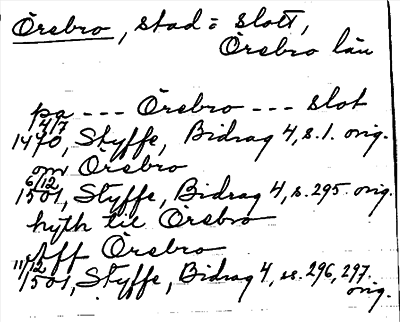 Örebro, stad = slott,
Örebro län
pa --- Örebro --- slot
14/7
1470, Styffe, Bidrag 4, s. 1. orig.
om Örebro
6/12
1501, Styffe, Bidrag 4, s. 295. orig.
hijth til Örebro
aff Örebro
11/12
1501, Styffe, Bidrag 4, ss. 296, 297.
orig.